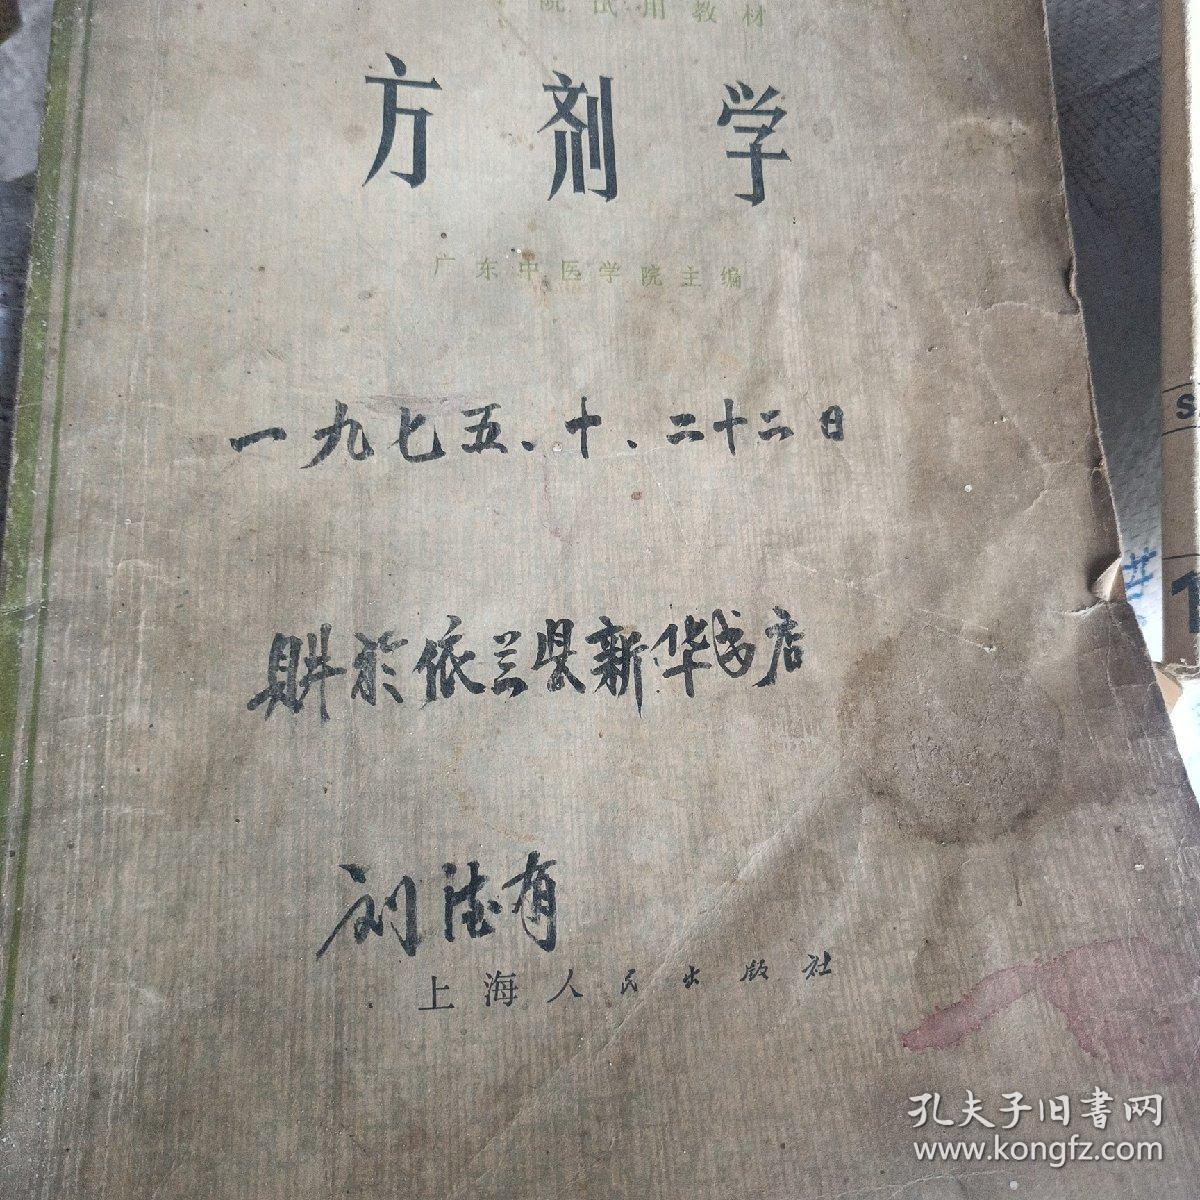 院试用教材
方剂学
广东中医学院主编
一九七五、十、二十二日
购於依兰县新华书店
刘德有
上海人民出版社
S
1
孔夫子旧書网
www.kongfz.com